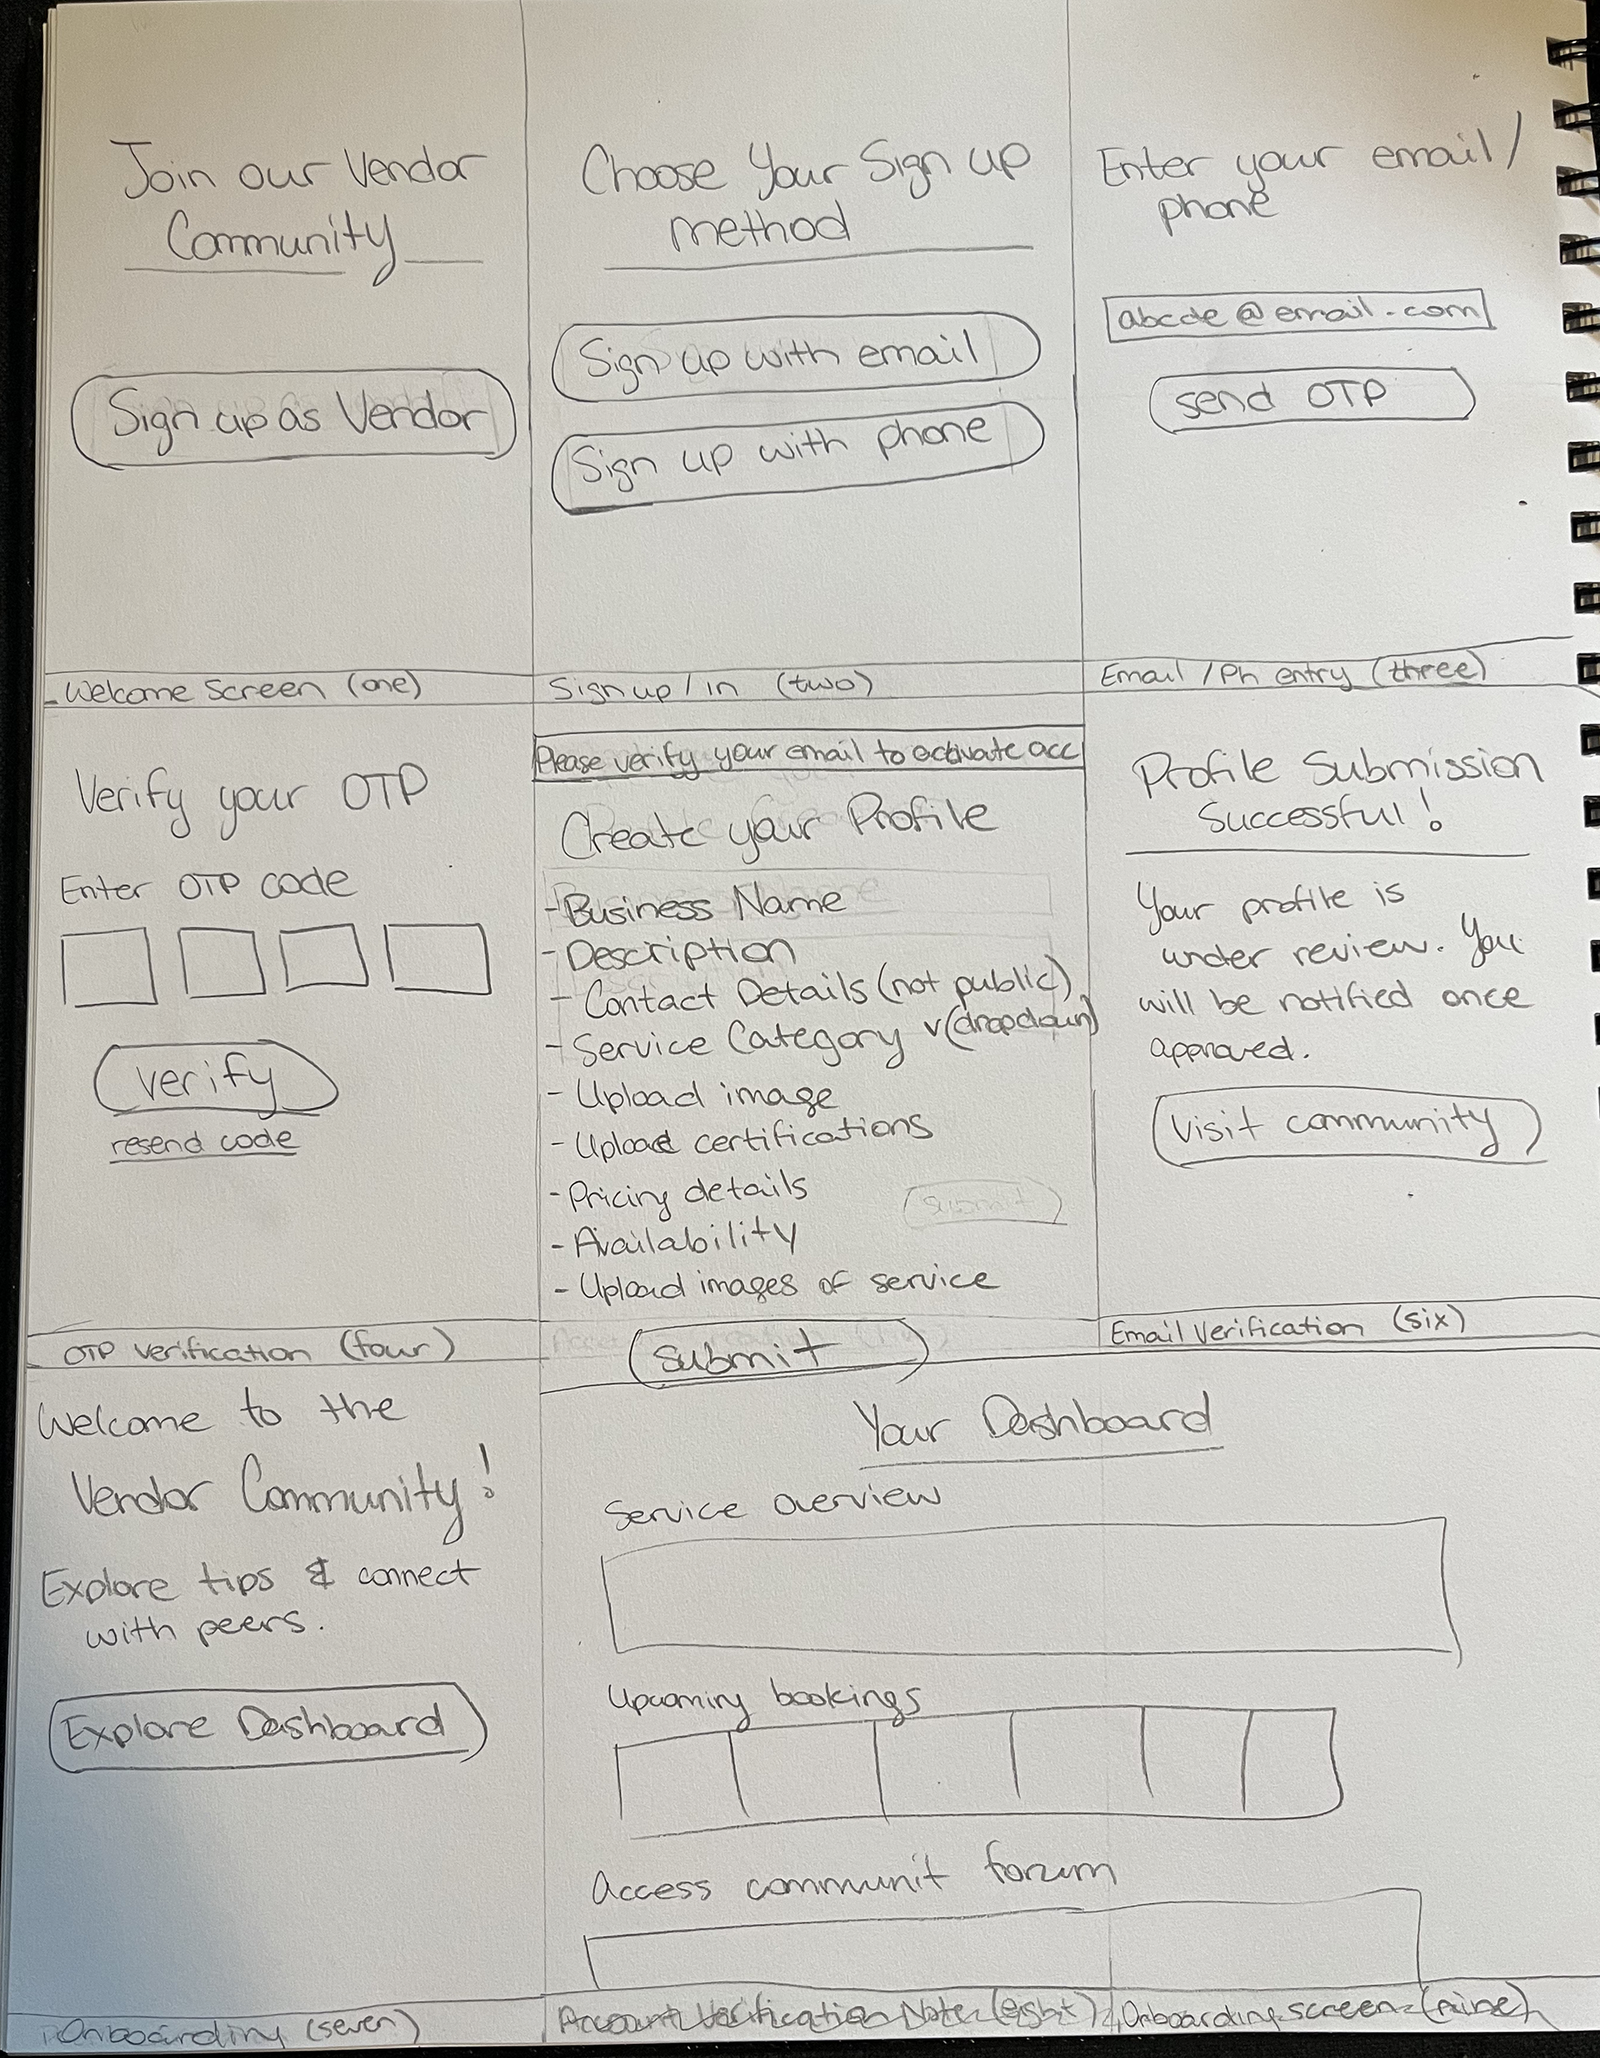 Join our Vendor
Community
Sign up as Vendor
Welcome Screen (one)
Choose Your Sign up
method
Sign up with email
Sign up with phone
Sign up / in (two)
Enter your email /
phone
abcde@email.com
send OTP
Email / Ph entry (three)
Verify your OTP
Enter OTP code
verify
resend code
OTP verification (four)
Please verify your email to activate acc
Create your Profile
- Business Name
- Description
- Contact Details (not public)
- Service Category v (dropdown)
- Upload image
- Upload certifications
- Pricing details
submit
- Availability
- Upload images of service
submit
Profile Submission
Successful!
Your profile is
under review. You
will be notified once
approved.
Visit community
Email Verification (six)
Welcome to the
Vendor Community!
Explore tips & connect
with peers.
Explore Dashboard
Onboarding (seven)
Your Dashboard
Service overview
Upcoming bookings
Access communit forum
Account Verification Note (eight)
Onboarding screen (nine)